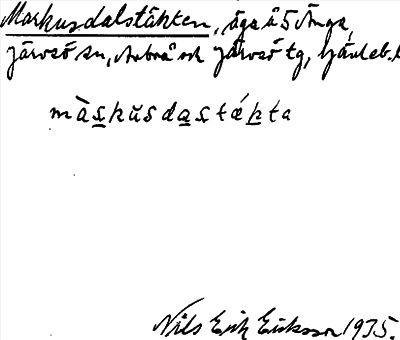 Markusdalstäkten, äga å 5 Ånga,
Järvsö sn, Arbrå och Järvsö tg, Gävleb. l
màskusdastǽkta
Nils Erik Eriksson 1935.